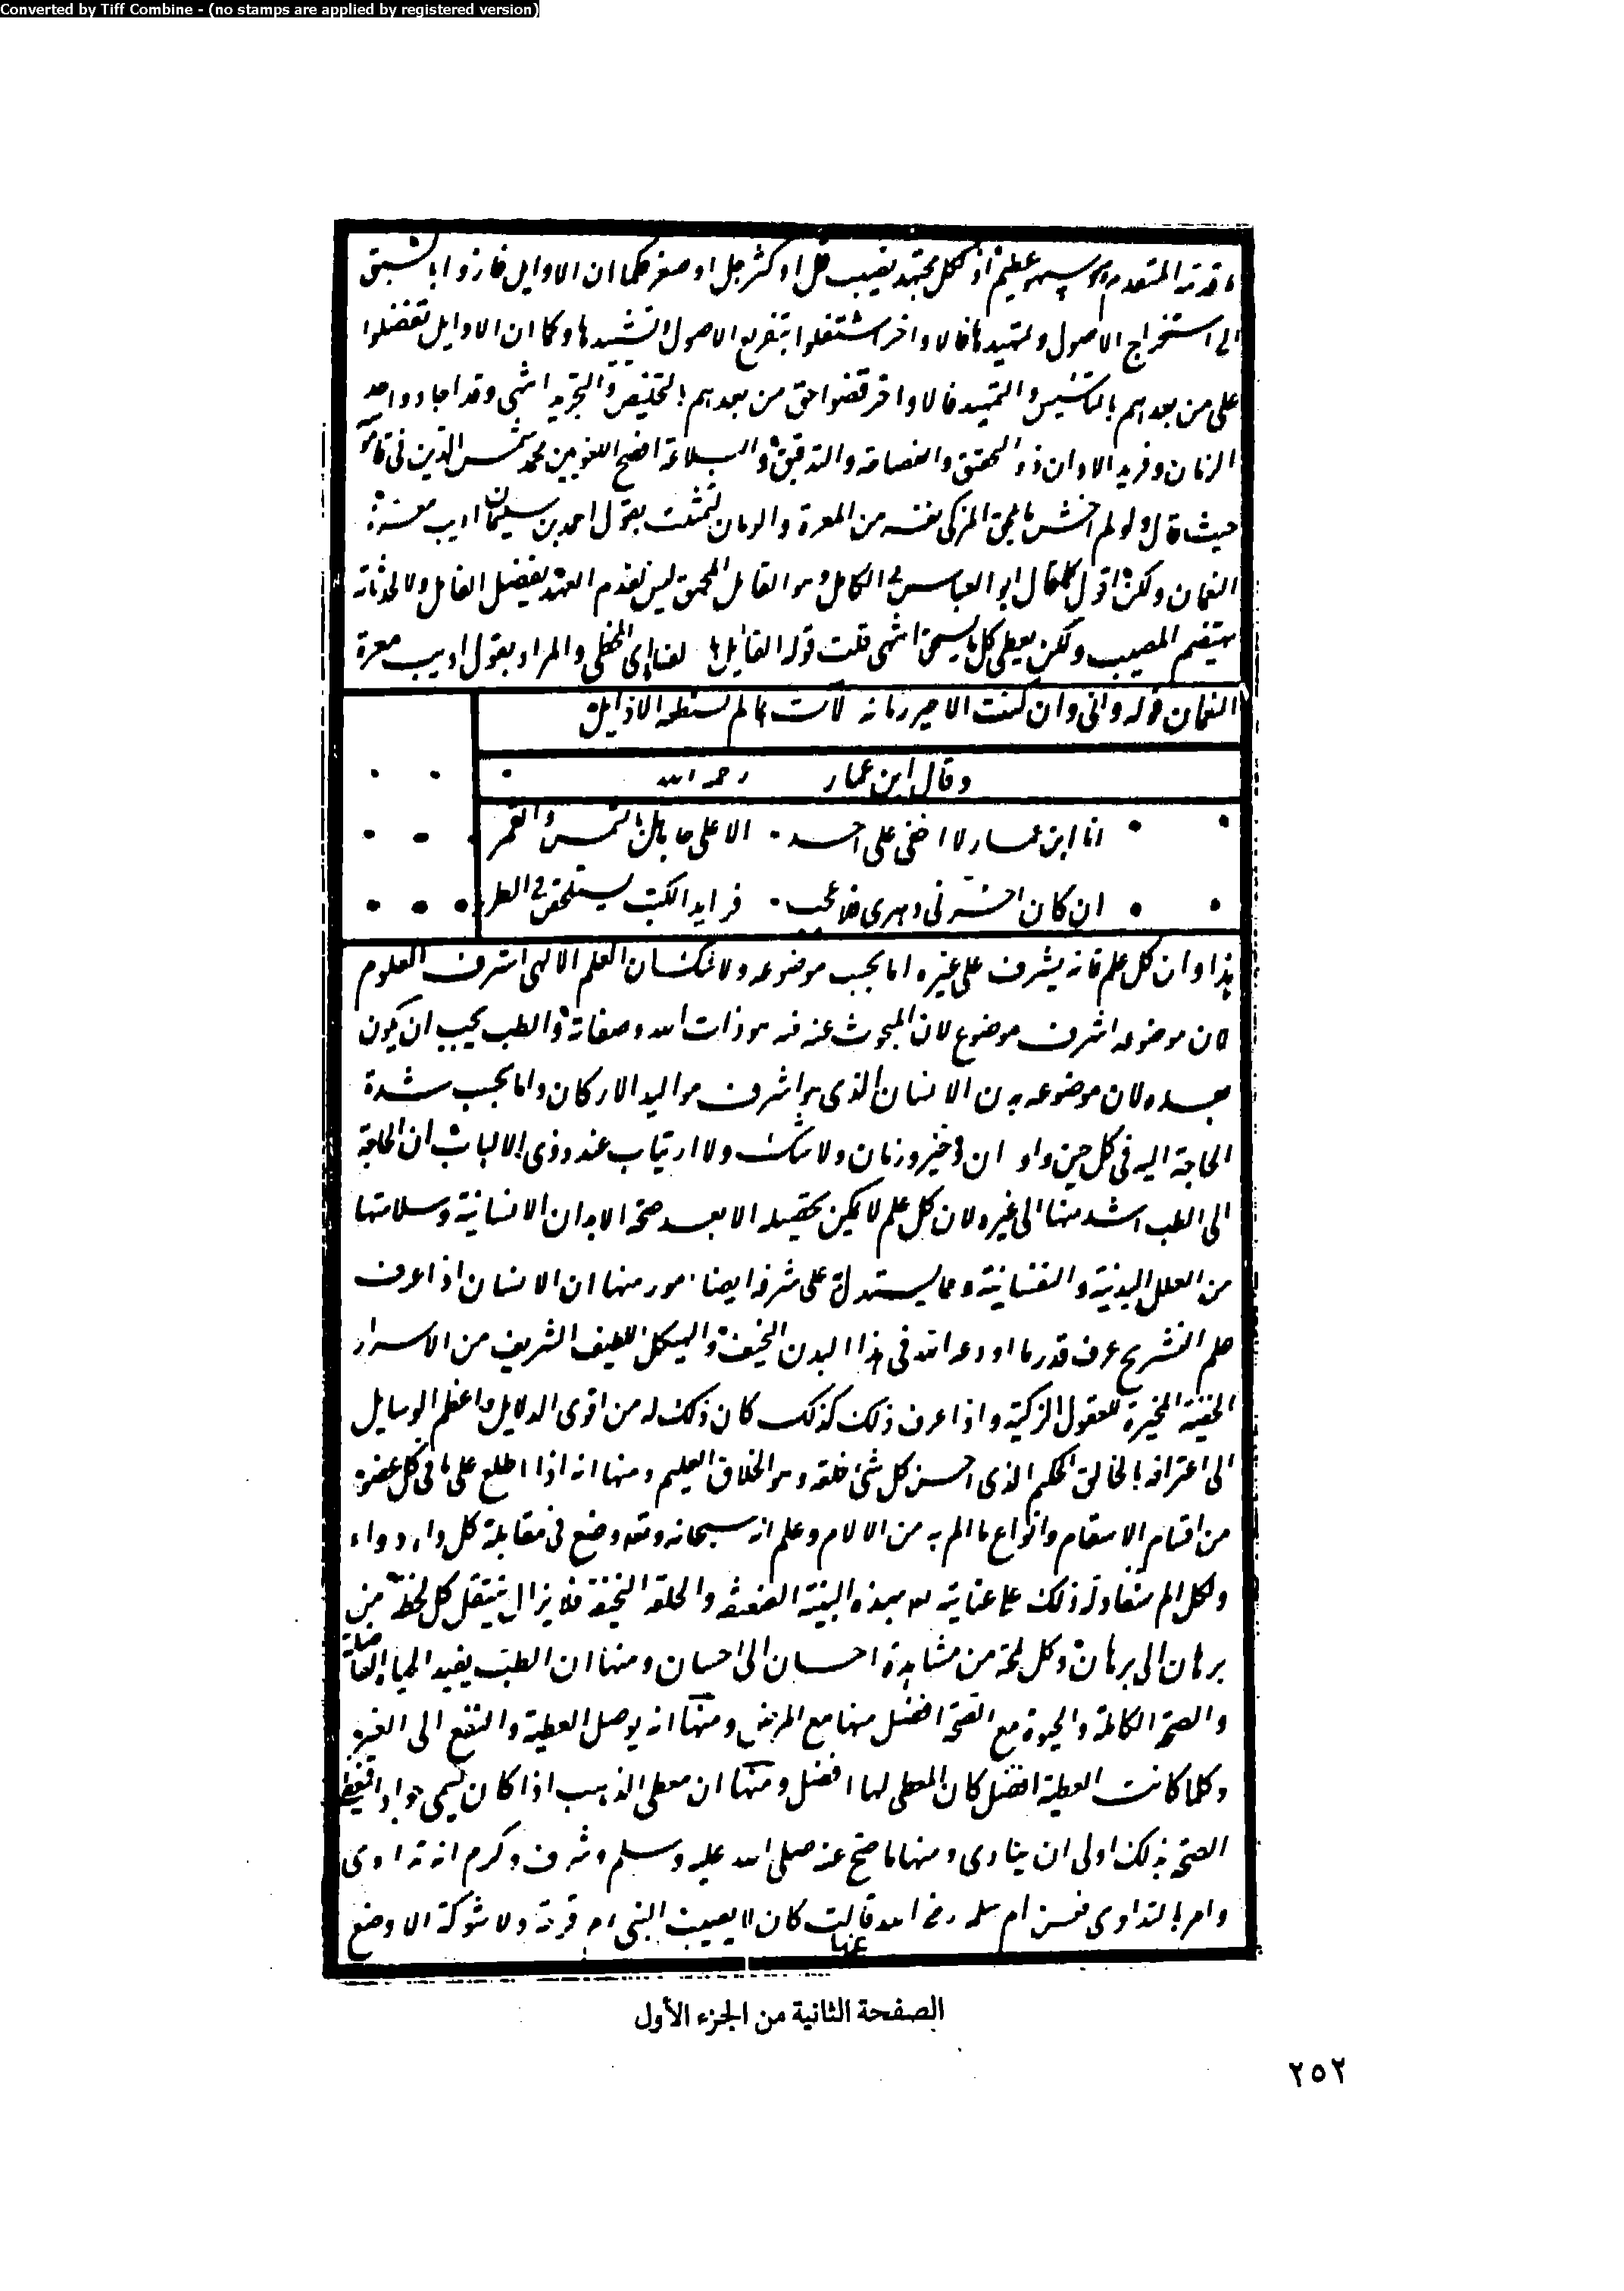 Converted by Tiff Combine - (no stamps are applied by registered version)
عظيم اذ لكل مجتهد نصيب قل او كثر جل او صغر فكما ان الاوايل فازوا بالسبق
الى استخراج الاصول وتمهيدها فالاواخر اشتغلوا بتفريع الاصول وتشييدها وكما ان الاوايل تفضلوا
على من بعدهم بالتاسيس والتمهيد فالاواخر قضوا حق من بعدهم بالتلخيص والتجريد انتهى وقد اجاد واحد
الزمان وفريد الاوان ذو التحقيق والفصاحة والتدقيق والبلاغة افصح اللغويين محمد شمس الدين في قاموسه
حيث قال ولو لم اخش ما يلحق المزكي نفسه من المعرة والدمان لتمثلت بقول احمد بن سليمان اديب معرة
النعمان ولكن اقول كما قال ابو العباس في الكامل وهو القائل المحق ليس لقدم العهد يفضل الفائل ولا لحدثانه
يهتضم المصيب ولكن يعطى كل ما يستحق انتهى قلت قوله الفائل بالفاء اي المخطي والمراد بقول اديب معرة
النعمان قوله واني وان كنت الاخير زمانه لآت بما لم تستطعه الاوايل
وقال ابن عمار رحمه الله
انا ابن عمار لا اخفى على احد الا على جاهل بالشمس والقمر
ان كان اخرني دهري فلا عجب فوايد الكتب يستلحقن في الطرر
هذا وان كل علم فانه يشرف على غيره اما بحسب موضوعه ولا شك ان العلم الالهي اشرف العلوم
لان موضوعه اشرف موضوع لان المبحوث عنه فيه هو ذات الله وصفاته والطب يجب ان يكون
بعده لان موضوعه بدن الانسان الذي هو اشرف مواليد الاركان واما بحسب شدة
الحاجة اليه في كل حين واوان وزمان ولا شك ولا ارتياب عند ذوي الالباب ان الحاجة
الى الطب اشد منها الى غيره لان كل علم لا يمكن تحصيله الا بعد صحة الابدان الانسانية وسلامتها
من العلل البدنية والنفسانية ومما يستدل على شرفه ايضا امور منها ان الانسان اذا عرف
علم التشريح عرف قدر ما اودعه الله في هذا البدن النحيف والهيكل اللطيف الشريف من الاسرار
الخفية المحيرة للعقول الزكية واذا عرف ذلك كذلك كان ذلك له من اقوى الدلايل واعظم الوسايل
الى اعترافه بالخالق الحكيم الذي احسن كل شئ خلقه وهو الخلاق العليم ومنها انه اذا اطلع على ما في كل عضو
من اقسام الاسقام وانواع ما الم به من الالام وعلم انه سبحانه وتعالى وضع في مقابلة كل داء دواء
ولكل الم شفاء دله ذلك على عنايته تعالى بهذه البنية الضعيفة والخلقة النحيفة فلا يزال ينتقل كل لحظة من
برهان الى برهان وكل لمحة من مشاهدة احسان الى احسان ومنها ان الطب يفيد الحياة الفاضلة
والصحة الكاملة والحيوة مع الصحة افضل منها مع المرض ومنها انه يوصل العطية والنفع الى الغير
وكلما كانت العطية افضل كان المعطي لها افضل ومنها ان معطي الذهب اذا كان يسمى جوادا
الصحة بذلك اولى ان ينادى ومنها ما صح عنه صلى الله عليه وسلم وشرف وكرم انه تداوى
وامر بالتداوي فعن ام سلمة رضي الله عنها قالت كان لا يصيب النبي قرحة ولا شوكة الا وضع
الصفحة الثانية من الجزء الأول
٢٥٢